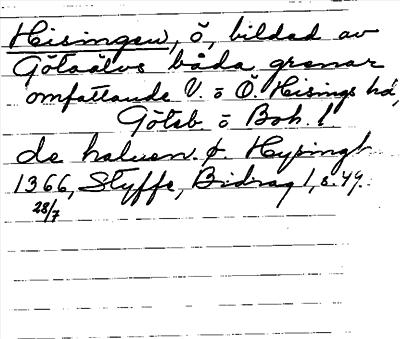 Hisingen, ö, bildad av
Götaälvs båda grenar
omfattande V. o Ö. Hisings hd,
Göteb. o Boh. l.
de haluen. ø. Hysingh
1366, Styffe, Bidrag 1, s. 49.
28/7